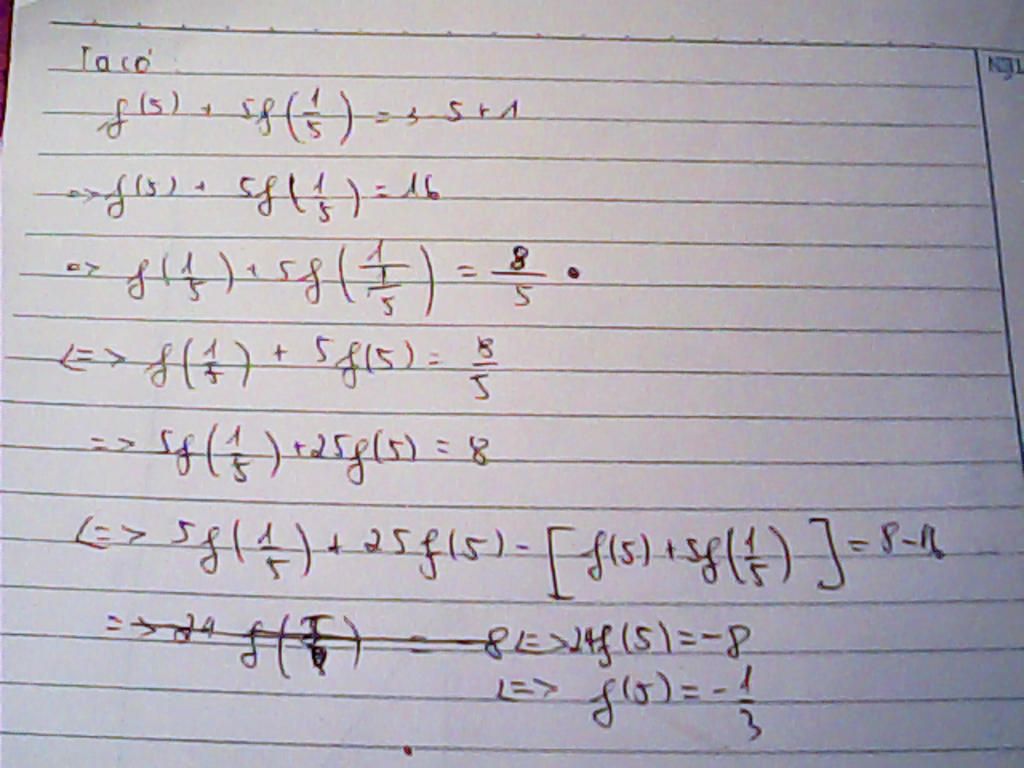 Ta có
f(5) + 5f(1/5) = 3 5 + 1
=> f(5) + 5f(1/5) = 16
=> f(1/5) + 5f(1/(1/5)) = 8/5
<=> f(1/5) + 5f(5) = 8/5
=> 5f(1/5) + 25f(5) = 8
<=> 5f(1/5) + 25f(5) - [f(5) + 5f(1/5)] = 8 - 16
<=> 24f(5) = -8
<=> f(5) = -1/3